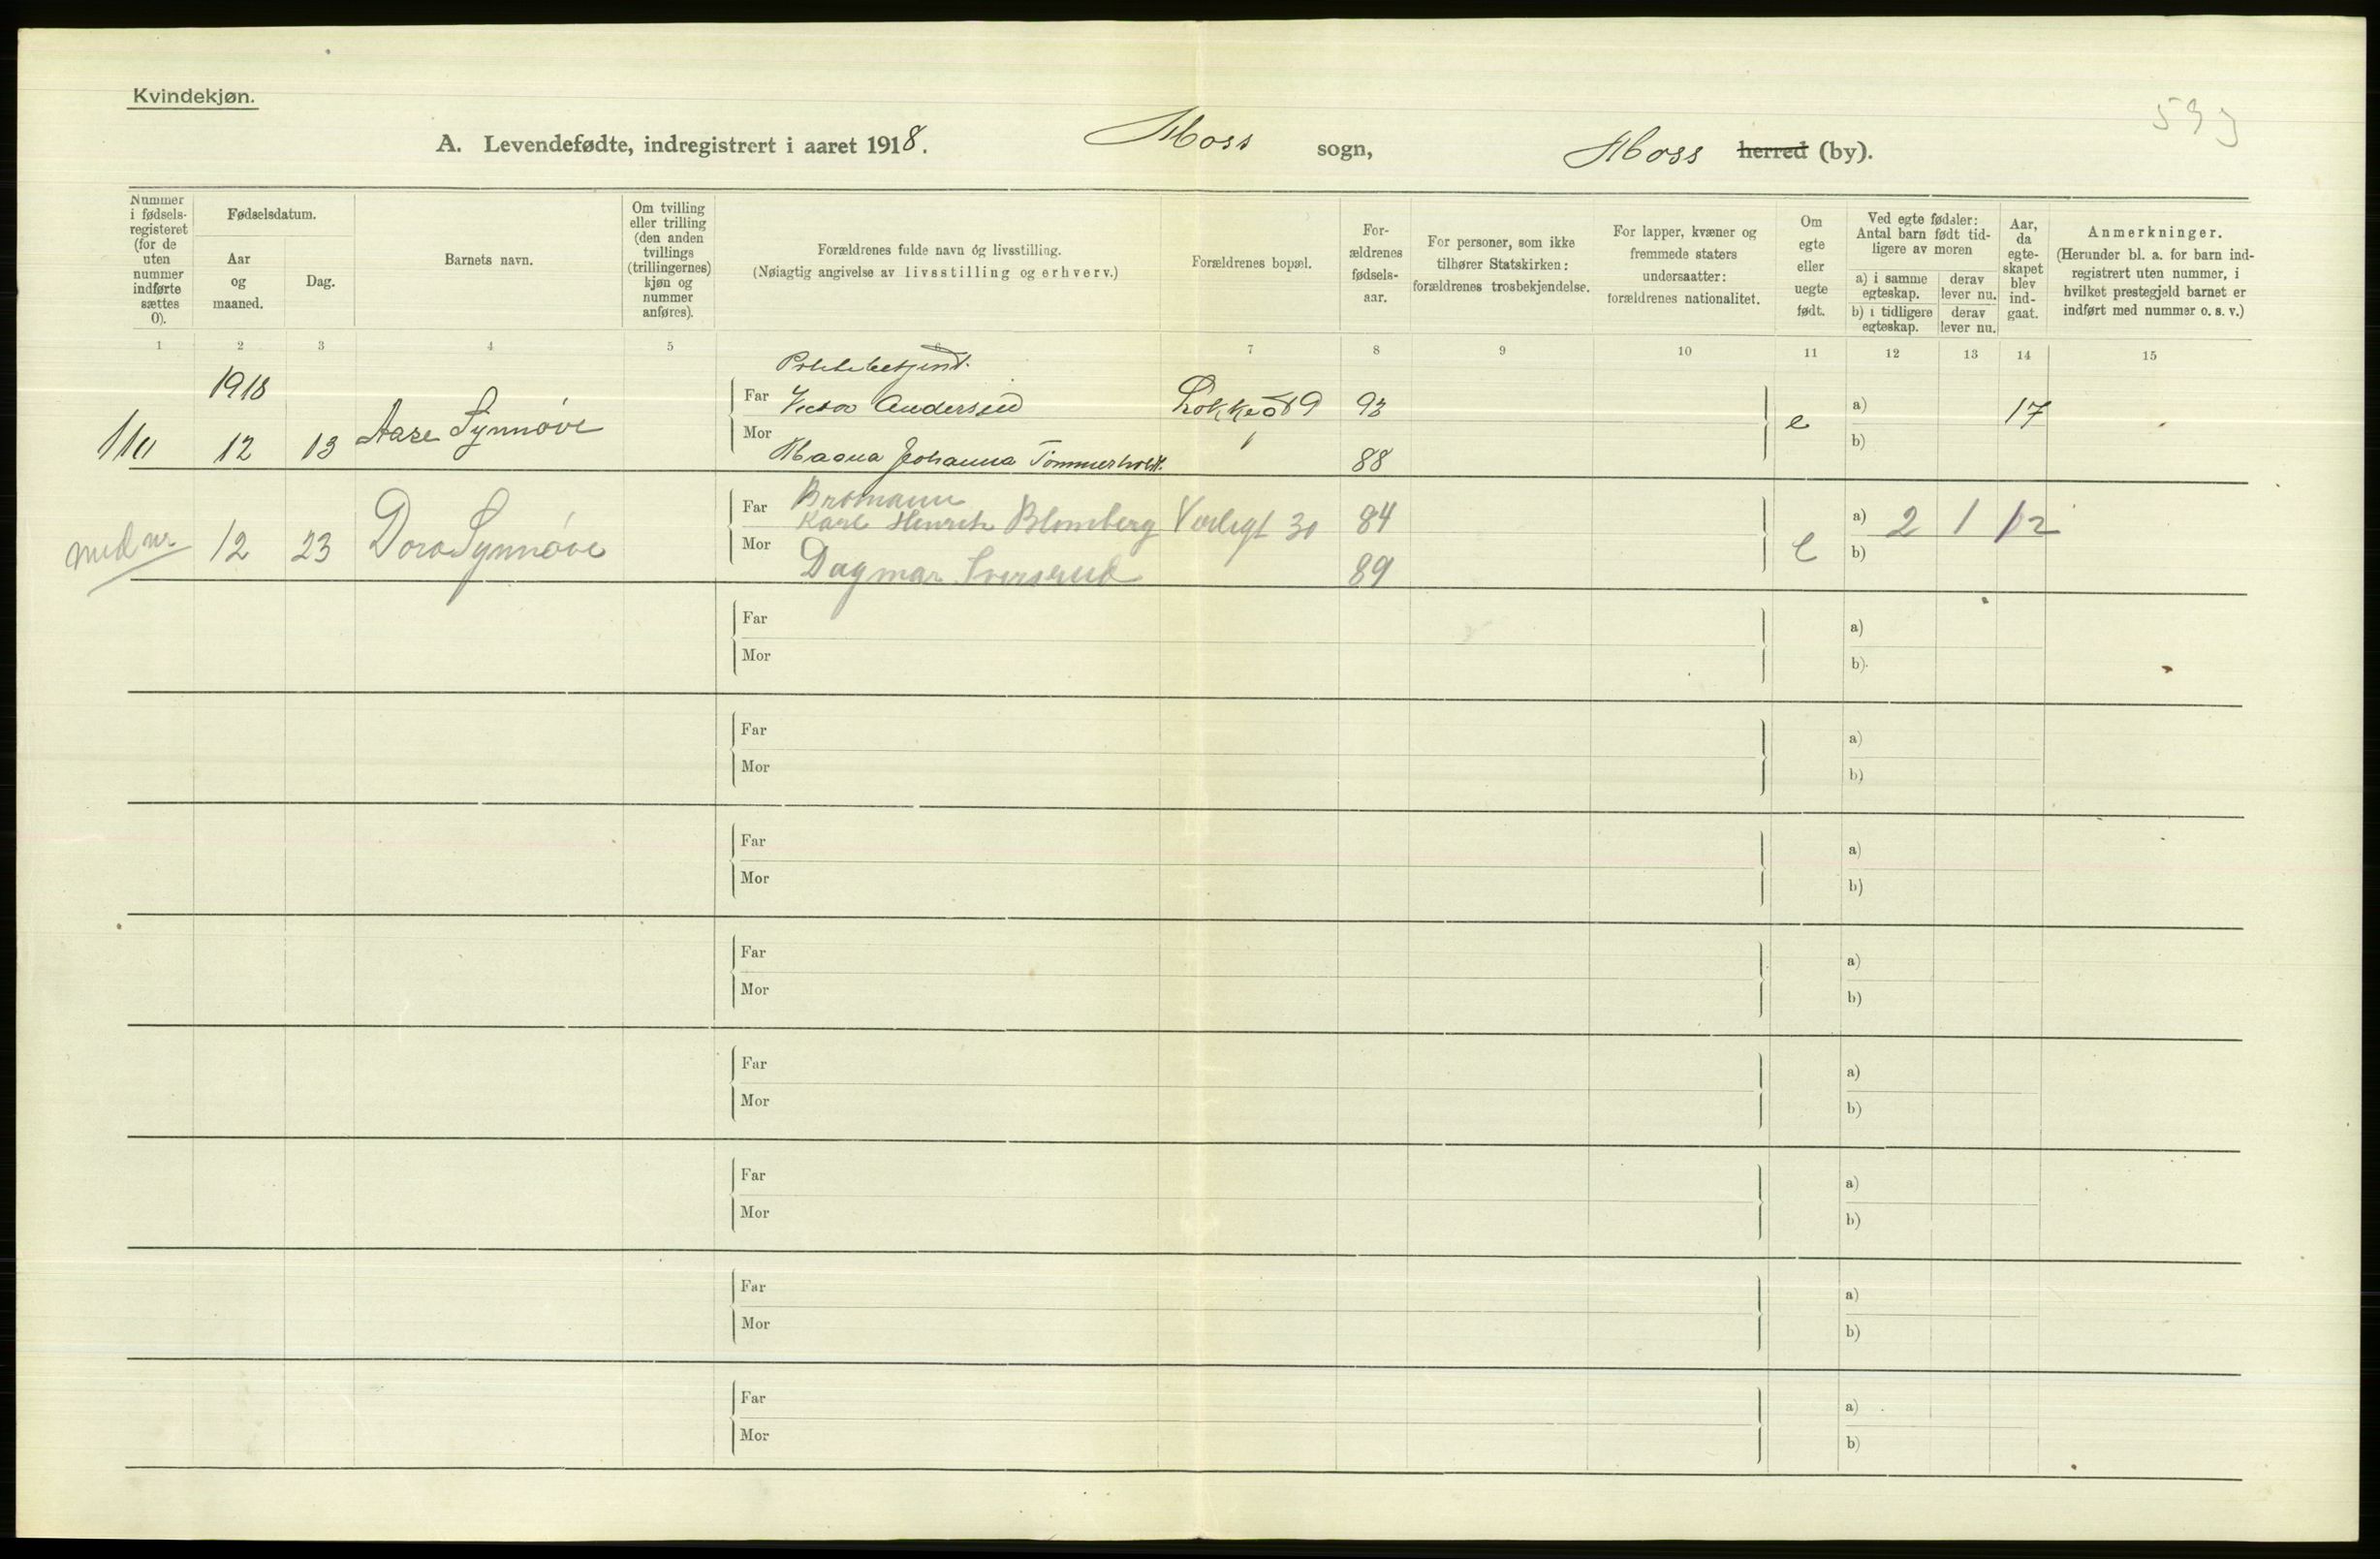 Kvindekjøn.
A. Levendefødte, indregistrert i aaret 1918. Moss sogn, Moss herred (by).
Nummer i fødsels-registeret (for de uten nummer indførte sættes 0).
Fødselsdatum.
Aar og maaned.
Dag.
Barnets navn.
Om tvilling eller trilling (den anden tvillings (trillingernes) kjøn og nummer anføres).
Forældrenes fulde navn og livsstilling.
(Nøiagtig angivelse av livsstilling og erhverv.)
Forældrenes bopæl.
For-ældrenes fødsels-aar.
For personer, som ikke tilhører Statskirken: forældrenes trosbekjendelse.
For lapper, kvæner og fremmede staters undersaatter: forældrenes nationalitet.
Om egte eller uegte født.
Ved egte fødsler: Antal barn født tid-ligere av moren
a) i samme egteskap.
derav lever nu.
b) i tidligere egteskap.
derav lever nu.
Aar, da egte-skapet blev ind-gaat.
Anmerkninger.
(Herunder bl. a. for barn ind-registrert uten nummer, i hvilket prestegjeld barnet er indført med nummer o. s. v.)
1 2 3 4 5 6 7 8 9 10 11 12 13 14 15
Politibetjent.
1918
Far Victor Andersen 93 a) 17
12 13 Aase Synnøve e
Mor b)
Magna Johanna Tømmerholt. 88
Bromann
Far Karl Henrik Blomberg Værlegt 30 84 a) 2 1 12
med nr. 12 23 Dora Synnøve e
Mor Dagmar 89 b)
Far a)
Mor b)
Far a)
Mor b)
Far a)
Mor b)
Far a)
Mor b)
Far a)
Mor b)
Far a)
Mor b)
Far a)
Mor b)
Far a)
Mor b)